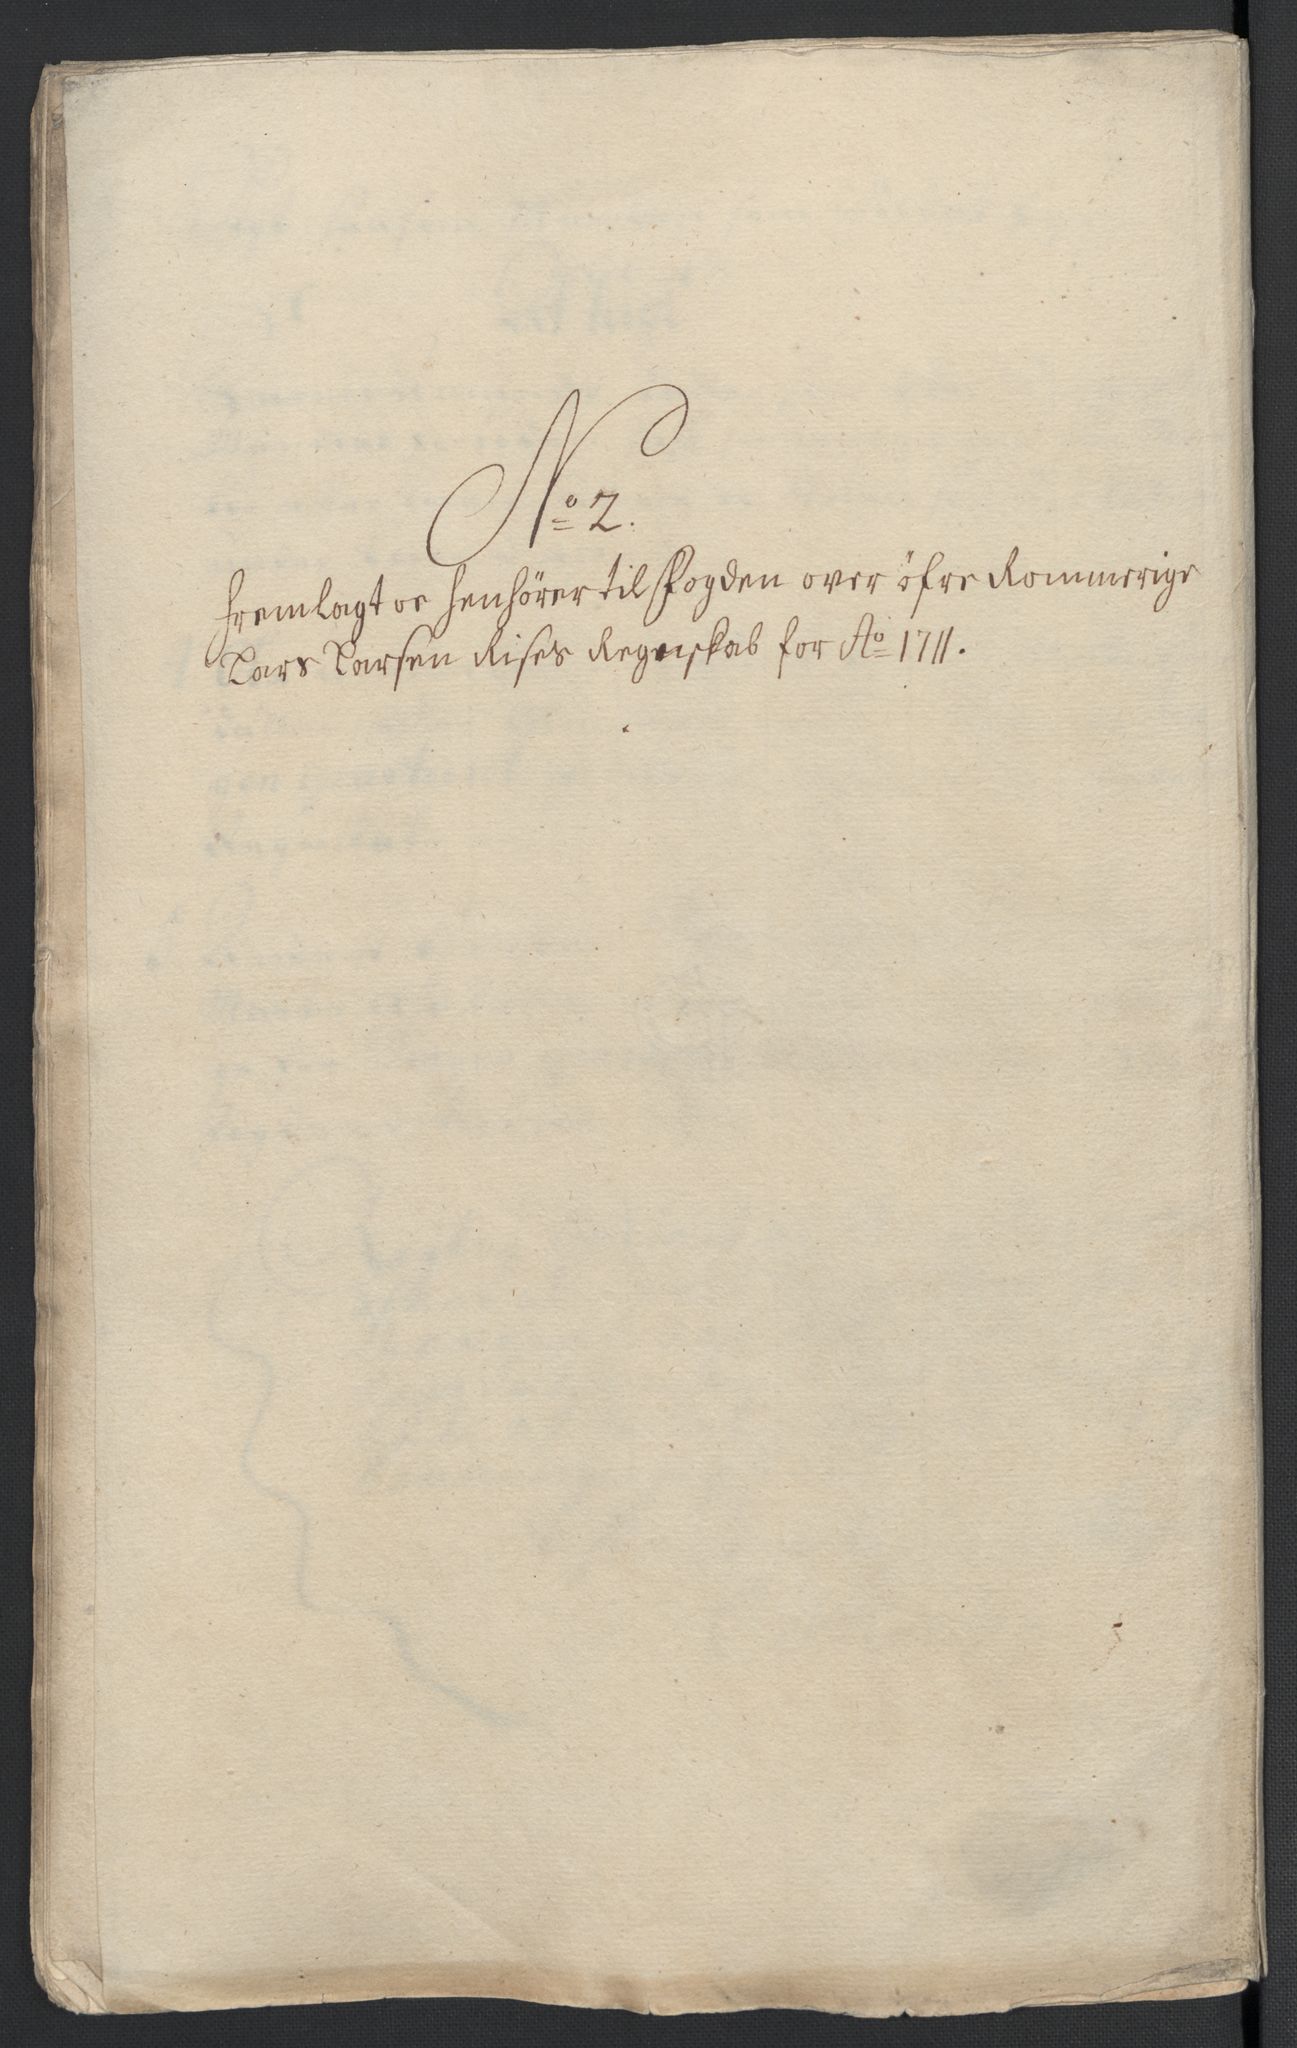 No 2.
fremlagt oc henhörer til Fogden over öfre Rommerige
Lars Larsen Rises Regnskab for Ao 1711.